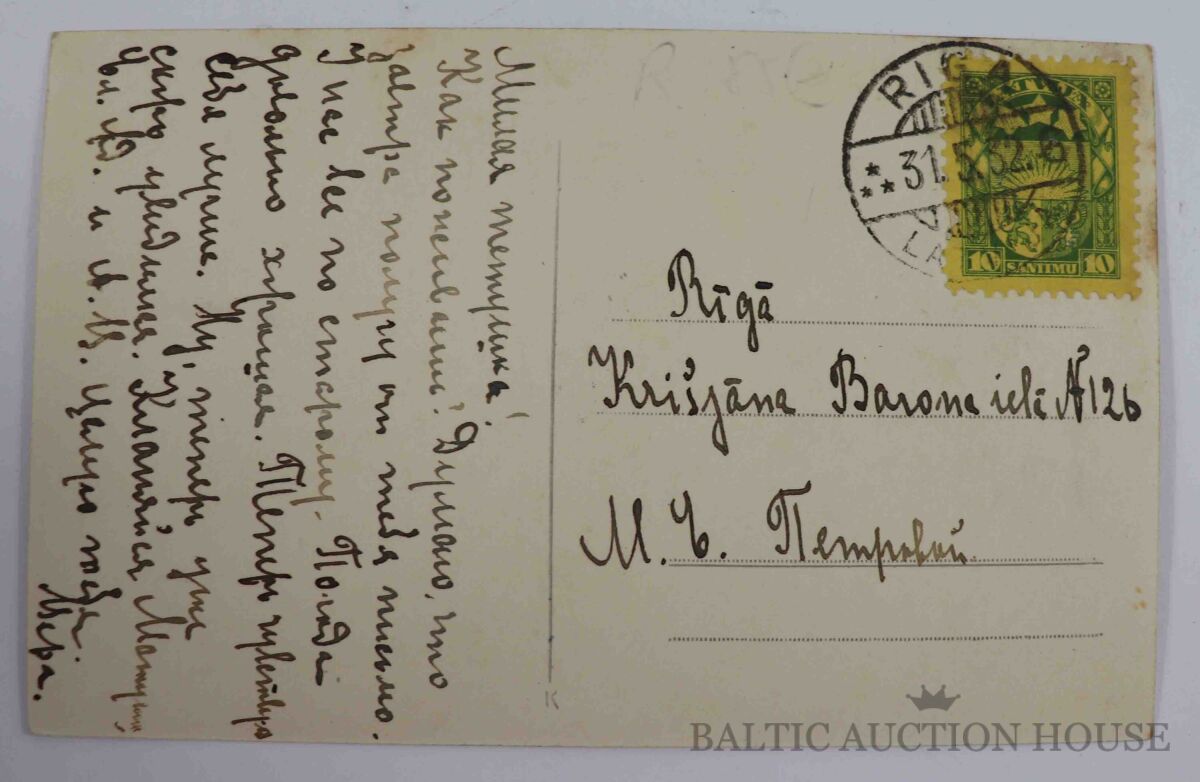 Милая тетушка!
Как поживаешь? Думаю, что
завтра получу от тебя письмо.
У нас все по старому. Погода
довольно хорошая. Теперь чувствую
себя лучше. Ну, теперь уже
скоро увидимся. Кланяйся
и А. И. Целую тебя.
Мера.
RIGA
31.5.32
LA
LATVIJA
10 SANTIMU 10
Rīgā
Krišjāna Barona ielā № 126
М. Ч. Петровой
BALTIC AUCTION HOUSE